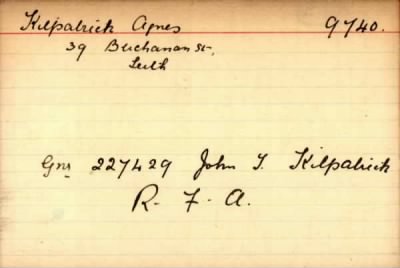 Kilpatrick Agnes 9740.
39 Buchanan St.
Leith
Gnr 227429 John T. Kilpatrick
R. F. A.